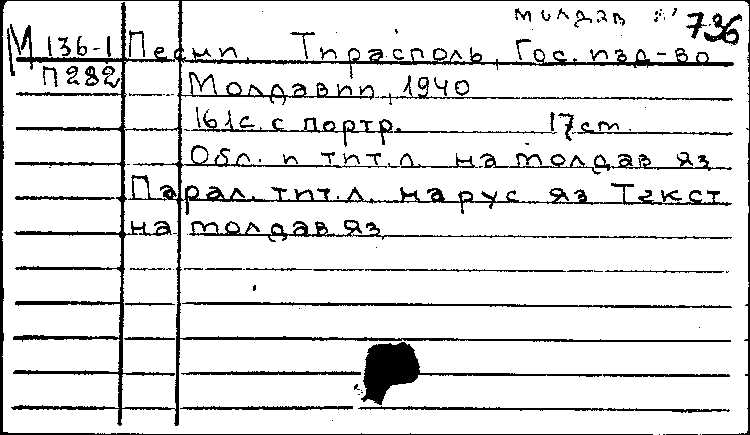 молдав яз 736
М 136-1 Песни. Тирасполь, Гос. изд-во
П282 Молдавии, 1940
161с. с портр. 17см.
Обл. и тит.л. на молдав яз
Парал. тит.л. на рус яз Текст
на молдав яз